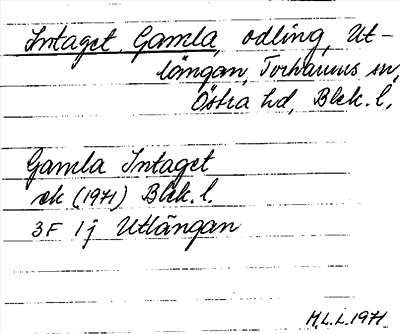 Intaget, Gamla, odling, Ut-
längan, Torhamns sn,
Östra hd, Blek. l.
Gamla Intaget
ek (1971) Blek. l.
3F 1j Utlängan
H.L.L. 1971